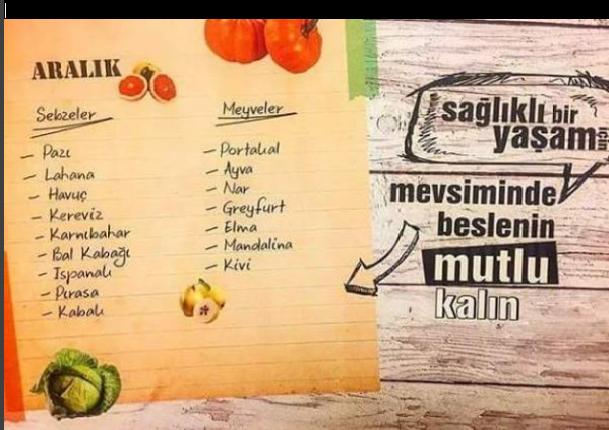 ARALIK
Sebzeler
— Pazı
— Lahana
— Havuç
— Kereviz
— Karnıbahar
— Bal Kabağı
— Ispanak
— Pırasa
— Kabak
Meyveler
— Portakal
— Ayva
— Nar
— Greyfurt
— Elma
— Mandalina
— Kivi
sağlıklı bir
yaşam için
mevsiminde
beslenin
mutlu
kalın